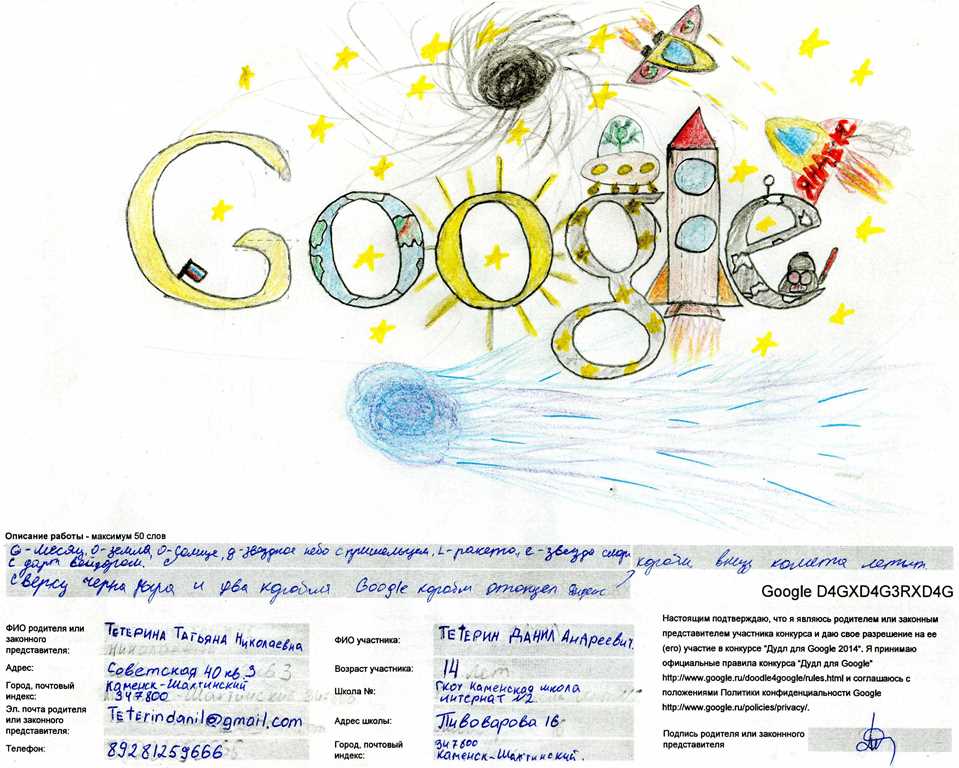 Google
ЯНДЕКС
Описание работы - максимум 50 слов
G-месяц, O-земля, O-солнце, g-звездное небо с пришельцем, L-ракета, e-звезда смерти
с дарт вейдером. корабли внизу комета летит.
Сверху черная дыра и два корабля Google корабль Яндекс
Google D4GXD4G3RXD4G
ФИО родителя или законного представителя:
ТЕТЕРИНА ТАТЬЯНА НИКОЛАЕВНА
Адрес:
Советская 40 кв 3
Город, почтовый индекс:
Каменск-Шахтинский
347800
Эл. почта родителя или законного представителя:
Teterindanil@gmail.com
Телефон:
89281259666
ФИО участника:
ТЕТЕРИН ДАНИЛ АНДРЕЕВИЧ
Возраст участника:
14 лет
Школа №:
ГКОУ Каменская школа
интернат №2
Адрес школы:
Пивоварова 16
Город, почтовый индекс:
347800
Каменск-Шахтинский.
Настоящим подтверждаю, что я являюсь родителем или законным
представителем участника конкурса и даю свое разрешение на ее
(его) участие в конкурсе "Дудл для Google 2014". Я принимаю
официальные правила конкурса "Дудл для Google"
http://www.google.ru/doodle4google/rules.html и соглашаюсь с
положениями Политики конфиденциальности Google
http://www.google.ru/policies/privacy/.
Подпись родителя или законнного
представителя